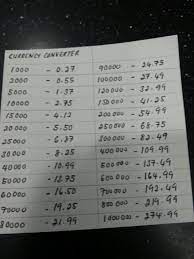 CURRENCY CONVERTER
1000 - 0.27
2000 - 0.55
5000 - 1.37
10000 - 2.75
15000 - 4.12
20000 - 5.50
25000 - 6.87
30000 - 8.25
40000 - 10.99
50000 - 13.75
60000 - 16.50
70000 - 19.25
80000 - 21.99
90000 - 24.75
100000 - 27.49
120000 - 32.99
150000 - 41.25
200000 - 54.99
250000 - 68.75
300000 - 82.49
400000 - 109.99
500000 - 137.49
600000 - 164.99
700000 - 192.49
800000 - 219.99
1000000 - 274.99